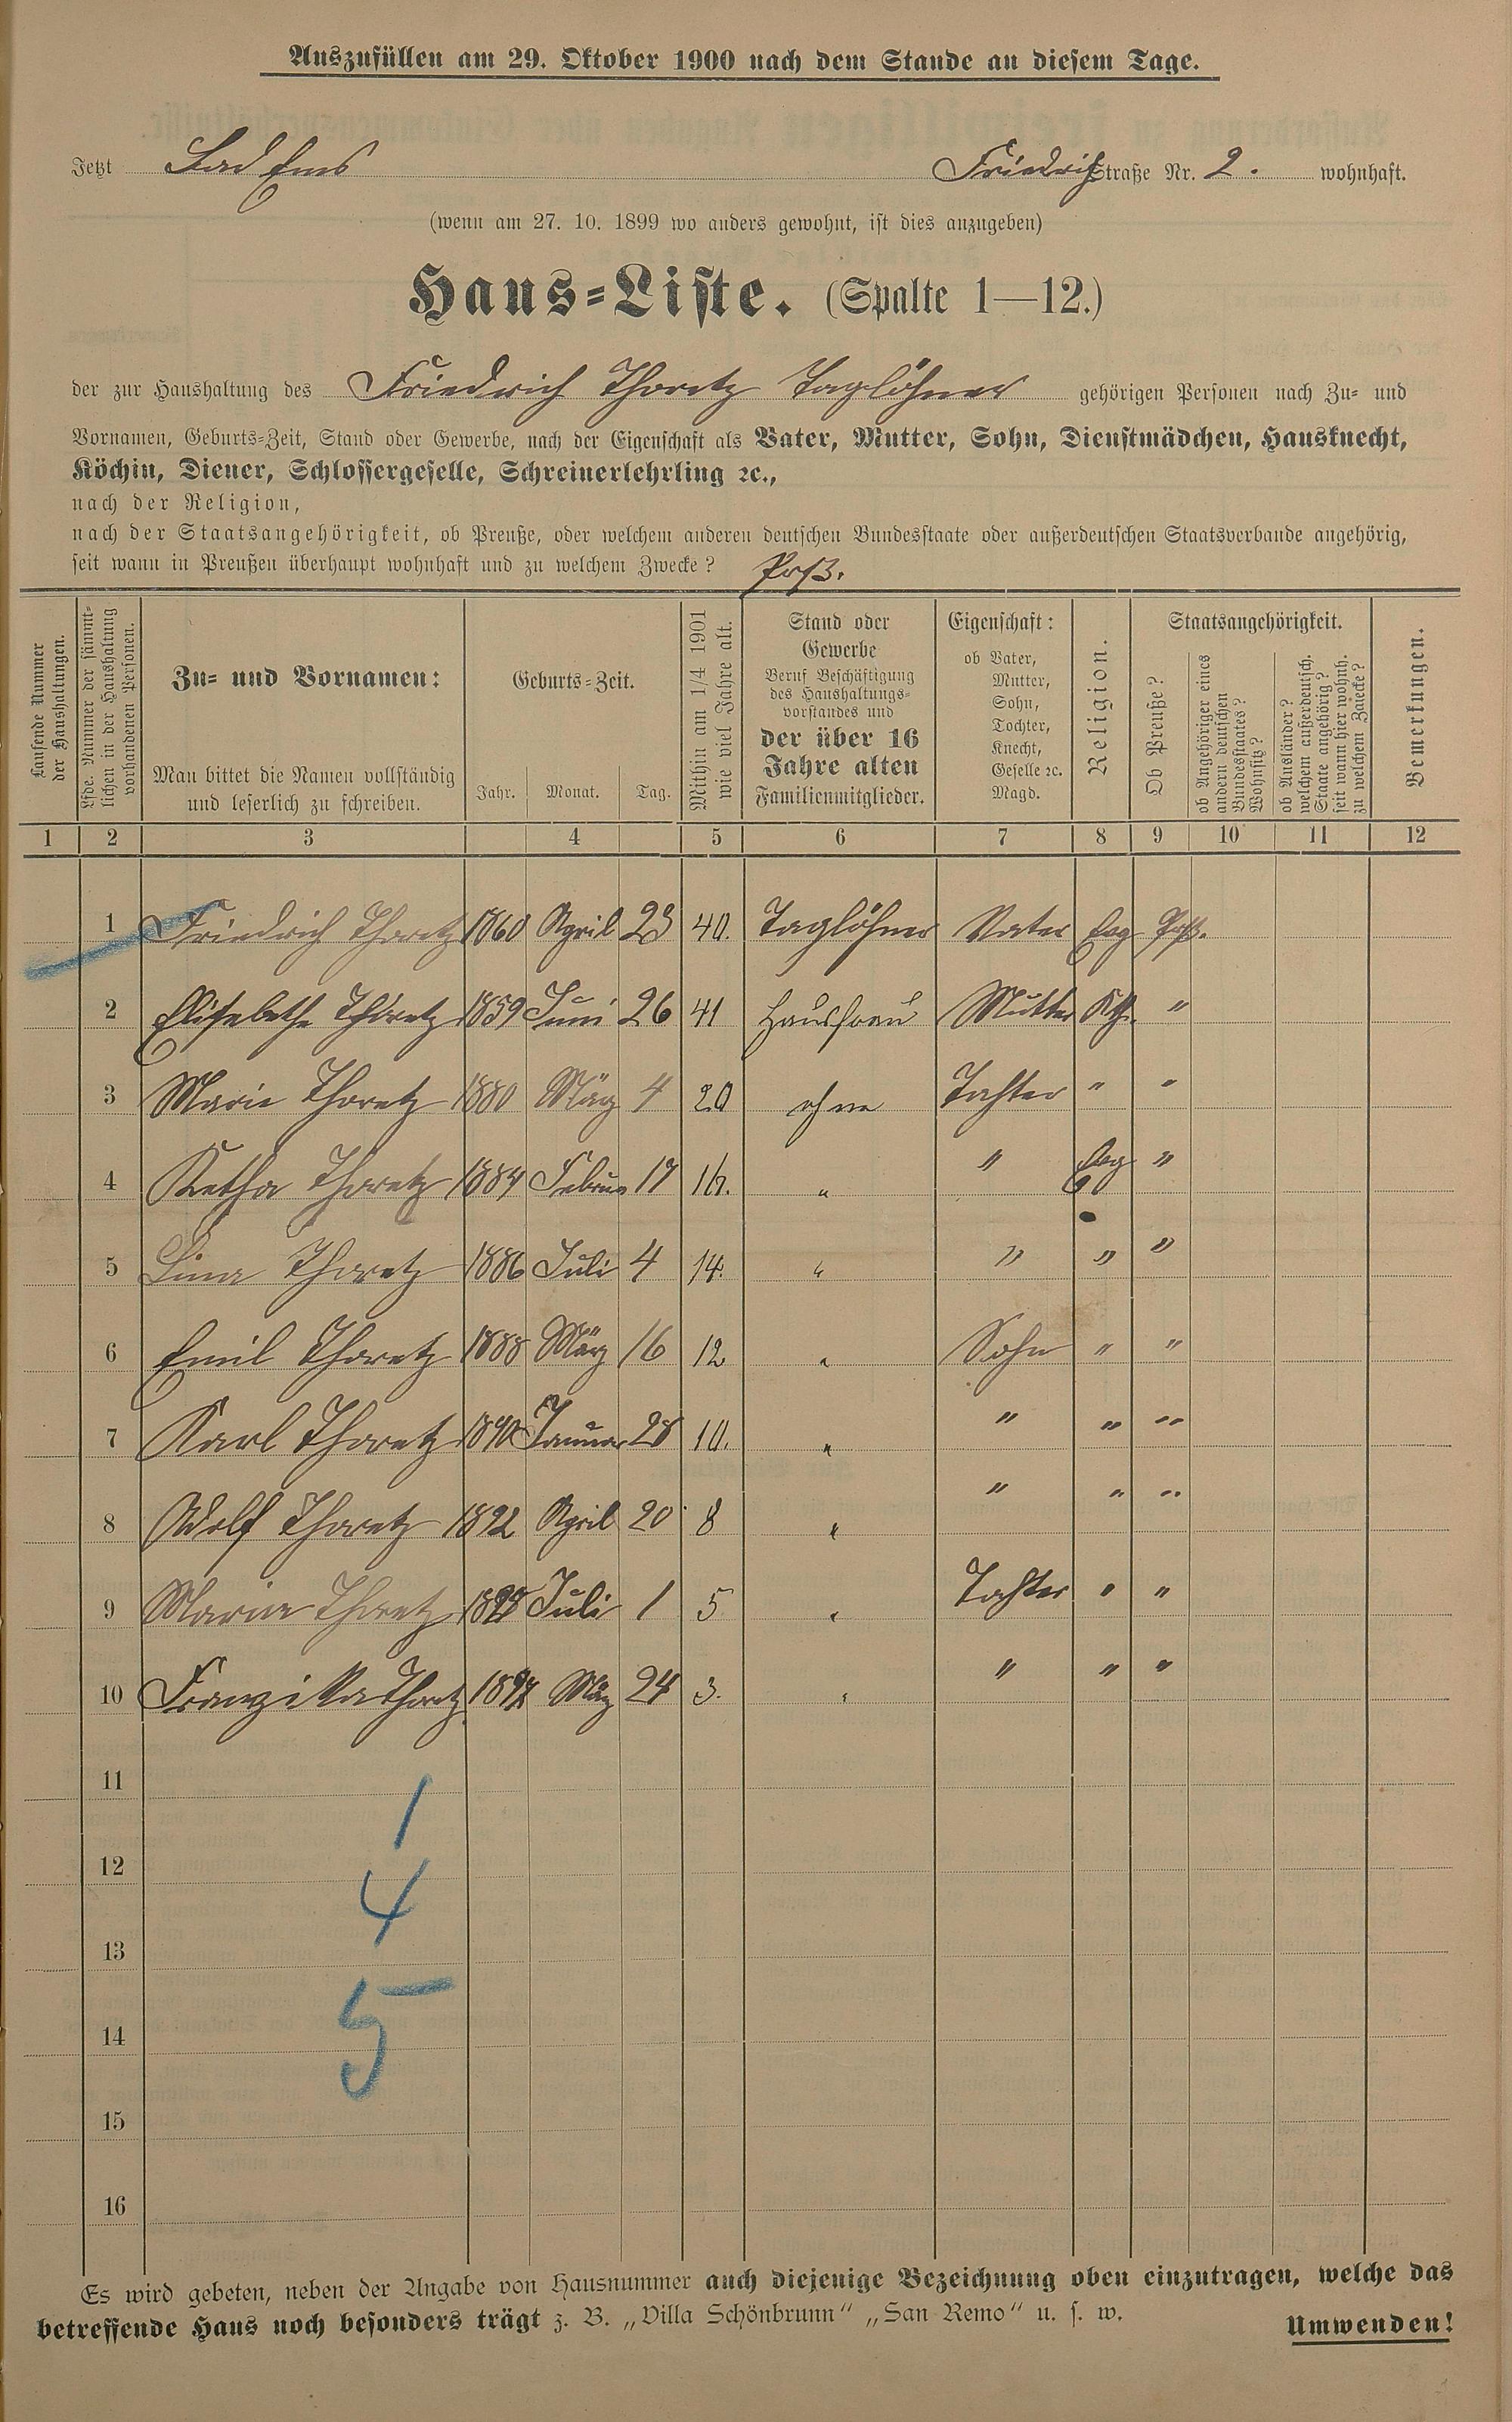 Auszufüllen am 29. Oktober 1900 nach dem Stande an diesem Tage.
Jetzt Bad Ems Friedrichstraße Nr. 2. wohnhaft.
(wenn am 27. 10. 1899 wo anders gewohnt, ist dies anzugeben)
Haus-Liste. (Spalte 1—12.)
der zur Haushaltung des Friedrich Thoretz Taglöhner gehörigen Personen nach Zu- und
Vornamen, Geburts-Zeit, Stand oder Gewerbe, nach der Eigenschaft als Vater, Mutter, Sohn, Dienstmädchen, Hausknecht,
Köchin, Diener, Schlossergeselle, Schreinerlehrling ꝛc.,
nach der Religion,
nach der Staatsangehörigkeit, ob Preuße, oder welchem anderen deutschen Bundesstaate oder außerdeutschen Staatsverbande angehörig,
seit wann in Preußen überhaupt wohnhaft und zu welchem Zwecke? Prß.
Laufende Nummer der Haushaltungen.
Lfde. Nummer der sämmtlichen in der Haushaltung vorhandenen Personen.
Zu- und Vornamen:
Man bittet die Namen vollständig
und leserlich zu schreiben.
Geburts-Zeit.
Jahr. Monat. Tag.
Mithin am 1/4 1901 wie viel Jahre alt.
Stand oder
Gewerbe
Beruf Beschäftigung
des Haushaltungs-
vorstandes und
der über 16
Jahre alten
Familienmitglieder.
Eigenschaft:
ob Vater,
Mutter,
Sohn,
Tochter,
Knecht,
Geselle ꝛc.
Magd.
Religion.
Staatsangehörigkeit.
Ob Preuße?
ob Angehöriger eines
andern deutschen
Bundesstaates?
Wohnsitz?
ob Ausländer?
welchem außerdeutsch.
Staate angehörig?
seit wann hier wohnh.
zu welchem Zwecke?
Bemerkungen.
1 2 3 4 5 6 7 8 9 10 11 12
1 Friedrich Thoretz 1860 April 23 40. Taglöhner Vater Evg Prß.
2 Elisabetha Thoretz 1859 Juni 26 41 Hausfrau Mutter Kth. "
3 Marie Thoretz 1880 März 4 20 ohne Tochter " "
4 Ketha Thoretz 1884 Februar 17 16. " " Evg "
5 Lina Thoretz 1886 Juli 4 14. " " " "
6 Emil Thoretz 1888 März 16 12 " Sohn " "
7 Karl Thoretz 1890 Januar 28 10. " " " "
8 Adolf Thoretz 1892 April 20 8 " " " "
9 Maria Thoretz Juli 1 5 " Tochter " "
10 Franziska Thoretz 1897 März 24 3. " " " "
11
1
12
4
13
5
14
15
16
Es wird gebeten, neben der Angabe von Hausnummer auch diejenige Bezeichnung oben einzutragen, welche das
betreffende Haus noch besonders trägt z. B. „Villa Schönbrunn“ „San Remo“ u. s. w. Umwenden!